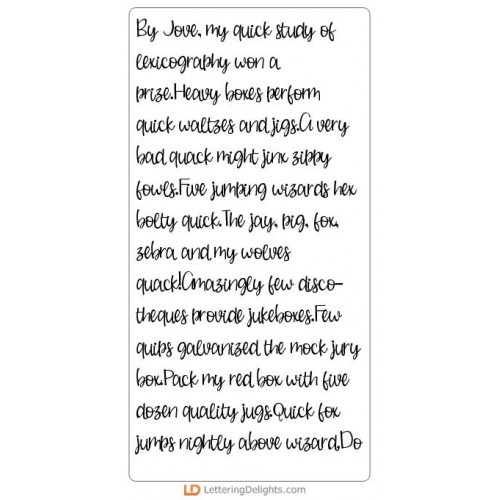 By Jove, my quick study of
lexicography won a
prize.Heavy boxes perform
quick waltzes and jigs.A very
bad quack might jinx zippy
fowls.Five jumping wizards hex
bolty quick.The jay, pig, fox,
zebra and my wolves
quack!Amazingly few disco-
theques provide jukeboxes.Few
quips galvanized the mock jury
box.Pack my red box with five
dozen quality jugs.Quick fox
jumps nightly above wizard.Do
LD LetteringDelights.com